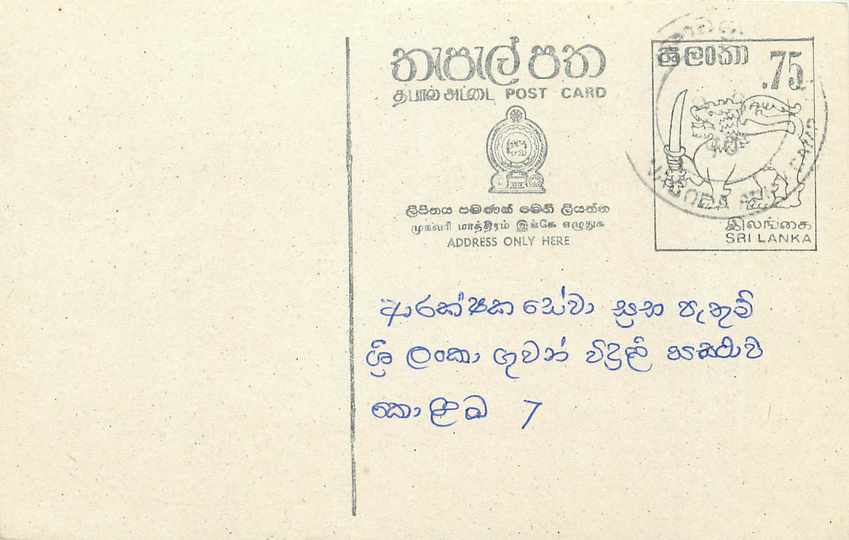 තැපැල් පත
தபால் அட்டை POST CARD
ලිපිනය පමණක් මෙහි ලියන්න
முகவரி மாத்திரம் இங்கே எழுதுக
ADDRESS ONLY HERE
ශ්‍රී ලංකා .75
இலங்கை
SRI LANKA
ආරක්ෂක සේවා සුභ පැතුම්
ශ්‍රී ලංකා ගුවන් විදුලි සංස්ථාව
කොළඹ 7